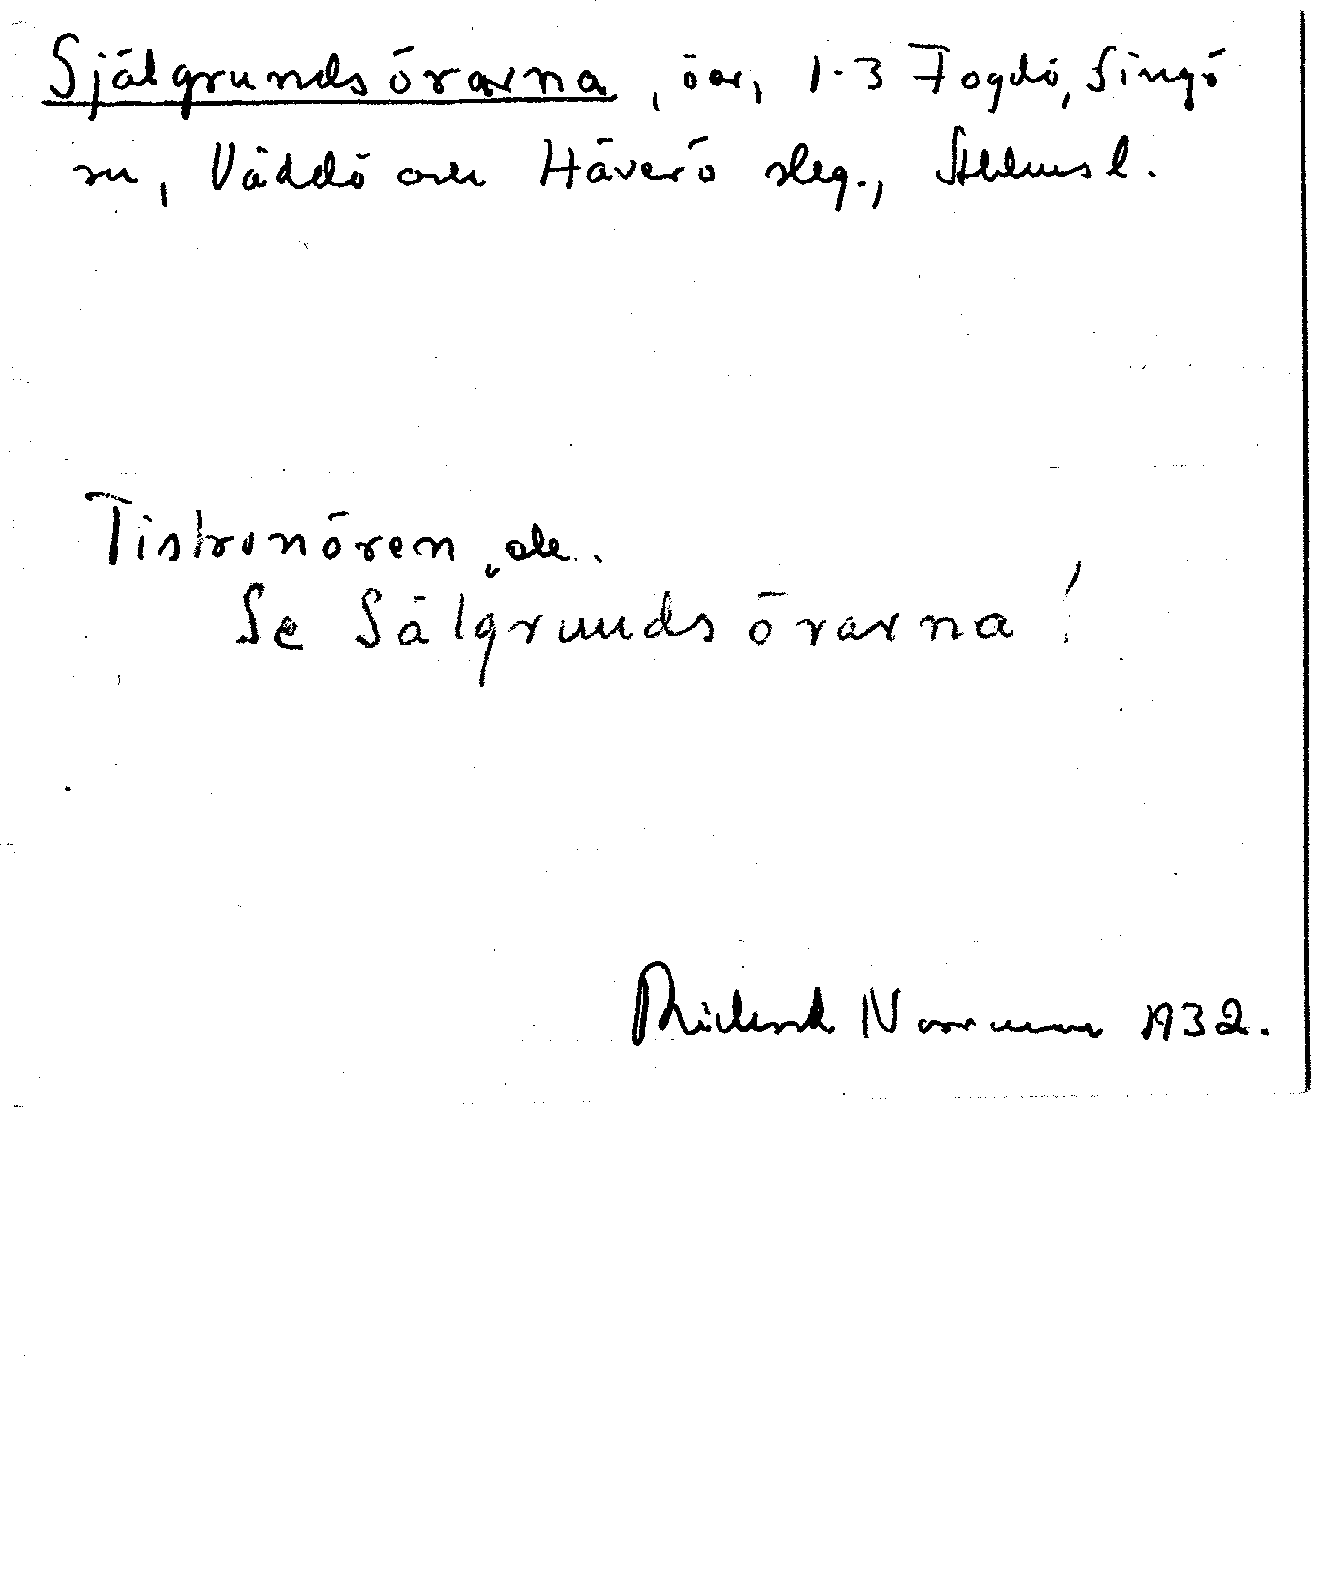 Själgrundsörarna, öar, 1-3 Fogdö, Singö
sn, Väddö och Häverö slag., Sthlms l.
Tistronören, ole.
Se Sälgrundsörarna!
Rickard Norrman 1932.